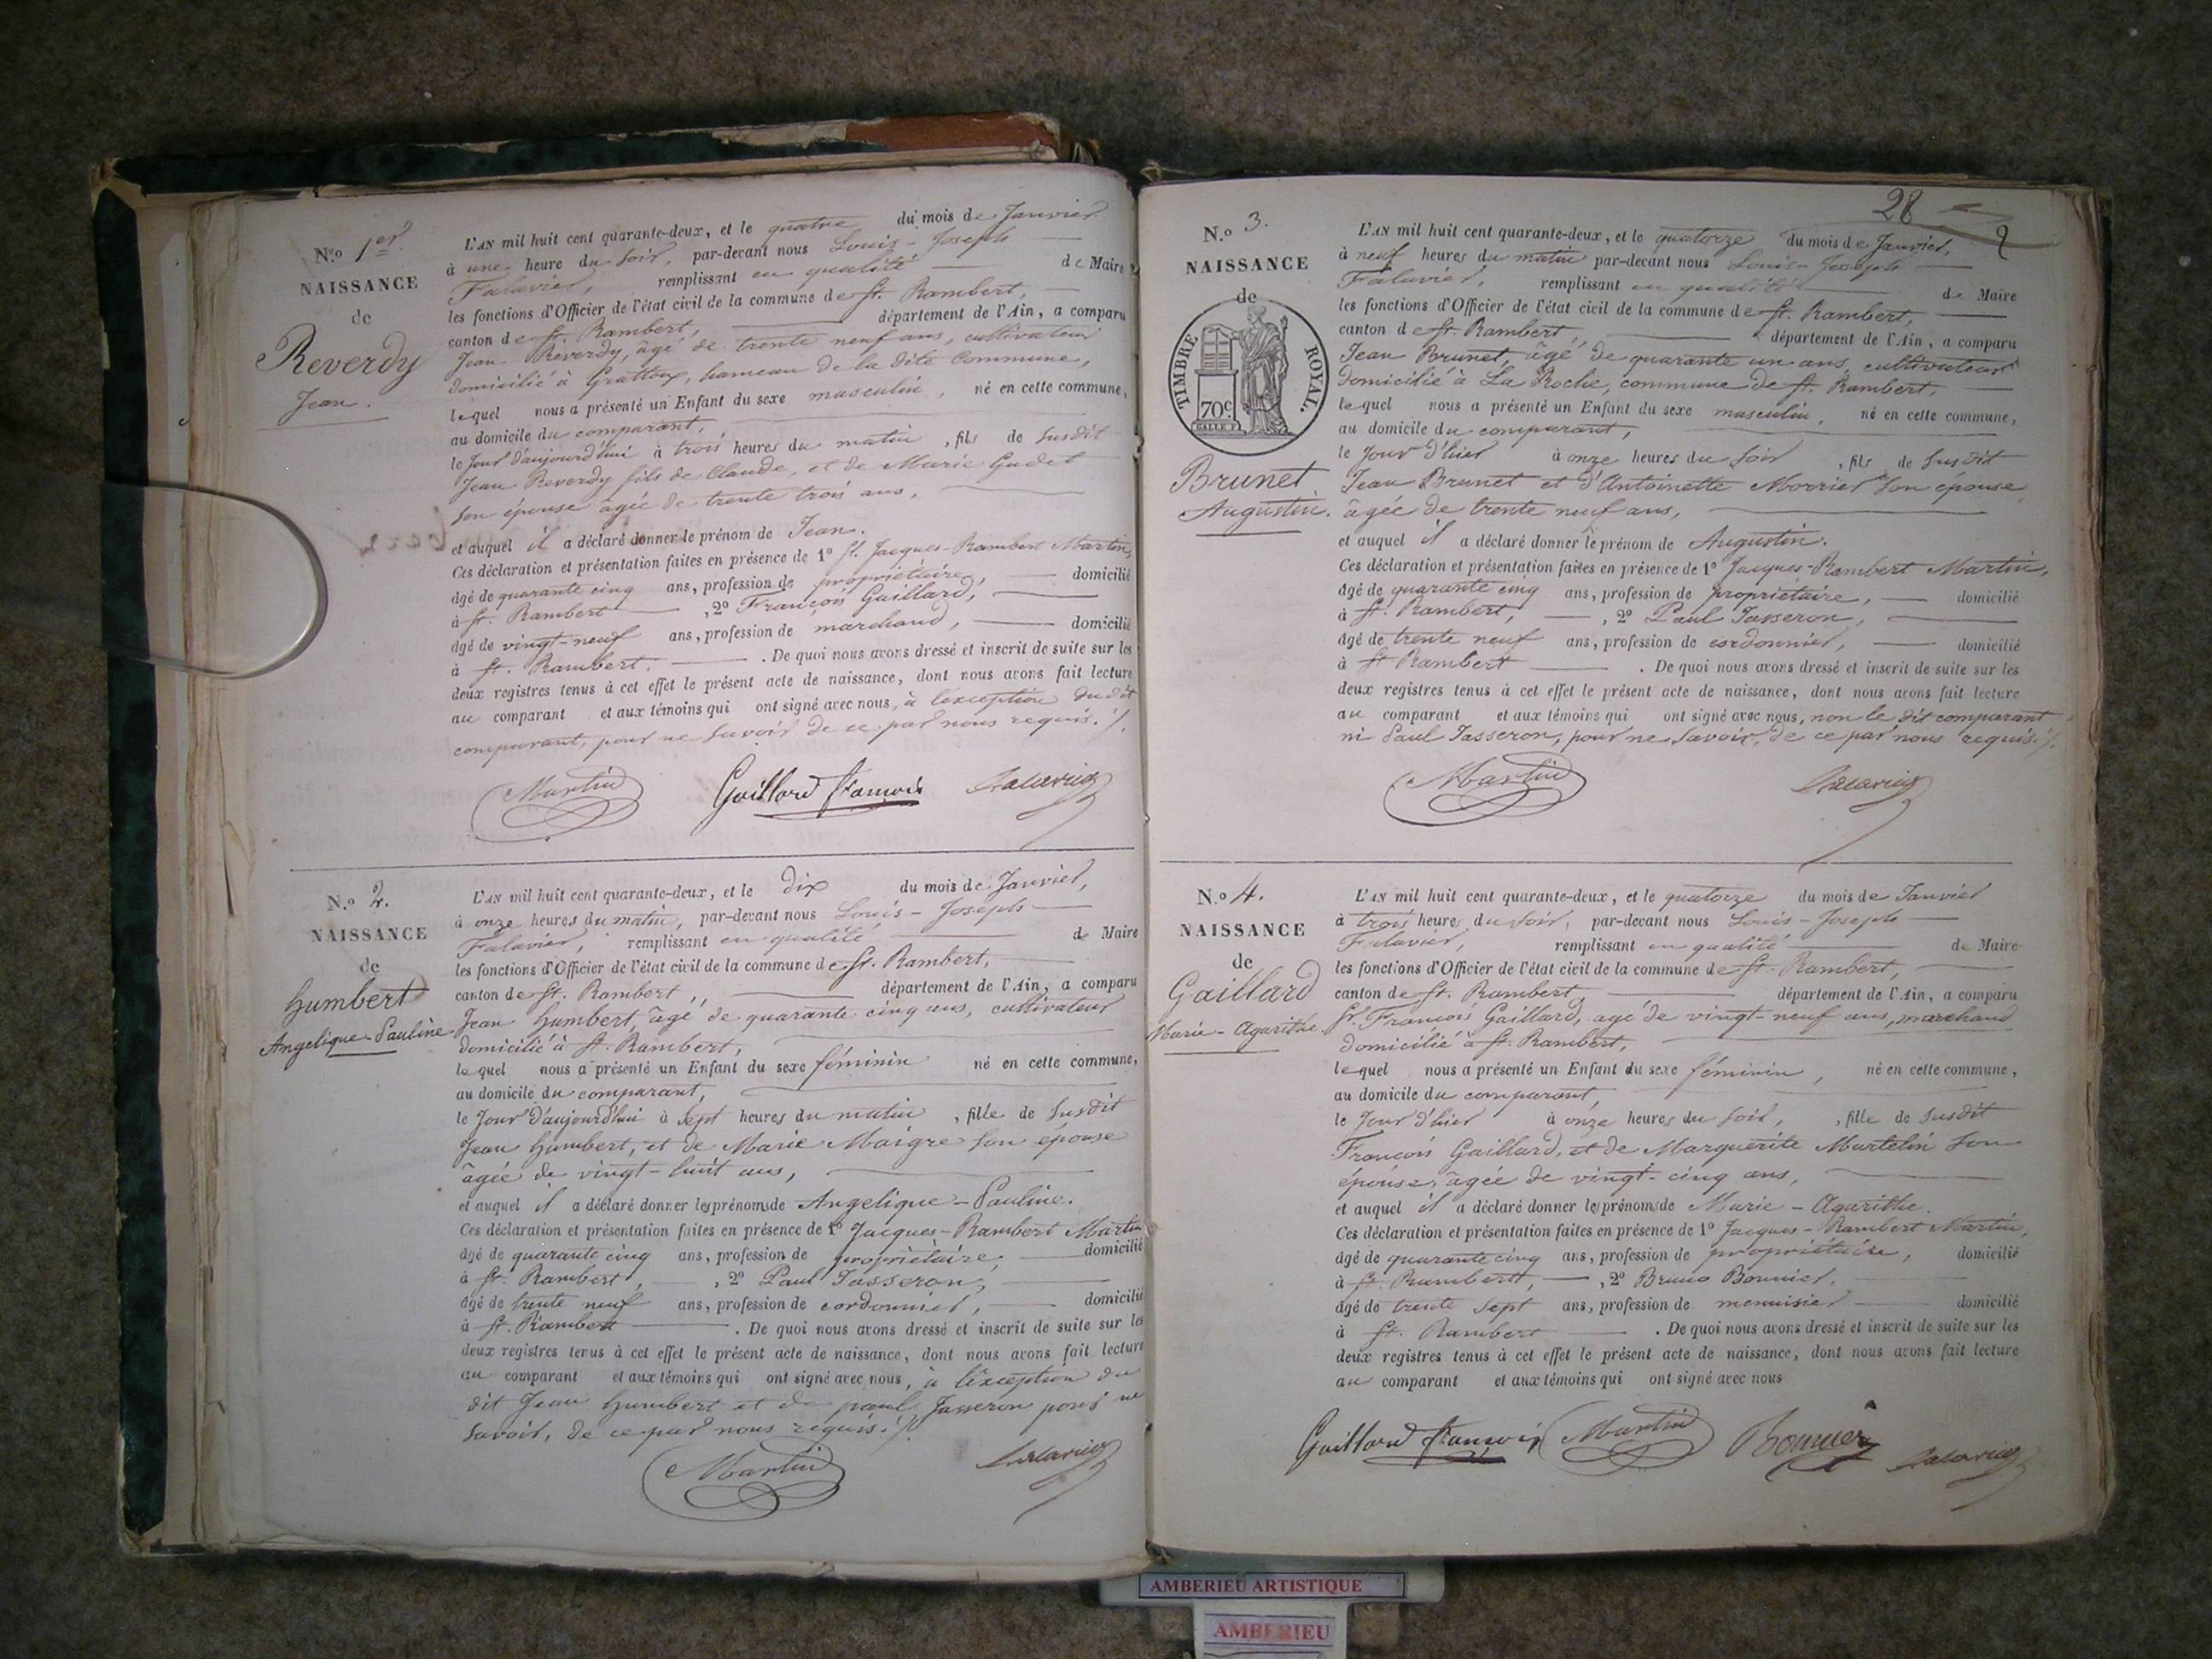 N.º 1er.
NAISSANCE
de
Reverdy
Jean.
L'AN mil huit cent quarante-deux, et le quatre du mois de Janvier
à une heure du soir, par-devant nous Louis-Joseph
Falavier, remplissant en qualité de Maire
les fonctions d'Officier de l'état civil de la commune de St. Rambert,
canton de St. Rambert, département de l'Ain, a comparu
Jean Reverdy, âgé de trente neuf ans, cultivateur
domicilié à Grattoux, hameau de la dite Commune,
lequel nous a présenté un Enfant du sexe masculin, né en cette commune,
au domicile du comparant,
le Jour d'aujourd'hui à trois heures du matin, fils de susdit
Jean Reverdy fils de Claude, et de Marie Gudet
son épouse âgée de trente trois ans,
et auquel il a déclaré donner le prénom de Jean.
Ces déclaration et présentation faites en présence de 1º Sr. Jacques-Rambert Martin,
âgé de quarante cinq ans, profession de propriétaire, domicilié
à St. Rambert, 2º François Gaillard,
âgé de vingt-neuf ans, profession de marchand, domicilié
à St. Rambert. De quoi nous avons dressé et inscrit de suite sur les
deux registres tenus à cet effet le présent acte de naissance, dont nous avons fait lecture
au comparant et aux témoins qui ont signé avec nous, à l'exception du dit
comparant, pour ne savoir de ce par nous requis./.
Martin Gaillard François Falavier
N.º 2.
NAISSANCE
de
Humbert
Angelique-Pauline
L'AN mil huit cent quarante-deux, et le dix du mois de Janvier,
à onze heures du matin, par-devant nous Louis-Joseph
Falavier, remplissant en qualité de Maire
les fonctions d'Officier de l'état civil de la commune de St. Rambert,
canton de St. Rambert, département de l'Ain, a comparu
Jean Humbert, âgé de quarante cinq ans, cultivateur
domicilié à St. Rambert,
lequel nous a présenté un Enfant du sexe féminin né en cette commune,
au domicile du comparant,
le Jour d'aujourd'hui à sept heures du matin, fille de susdit
Jean Humbert, et de Marie Maigre son épouse
âgée de vingt-huit ans,
et auquel il a déclaré donner les prénoms de Angelique-Pauline.
Ces déclaration et présentation faites en présence de 1º Jacques-Rambert Martin
âgé de quarante cinq ans, profession de propriétaire, domicilié
à St. Rambert, 2º Paul Jasseron,
âgé de trente neuf ans, profession de cordonnier, domicilié
à St. Rambert. De quoi nous avons dressé et inscrit de suite sur les
deux registres tenus à cet effet le présent acte de naissance, dont nous avons fait lecture
au comparant et aux témoins qui ont signé avec nous, à l'exception du
dit Jean Humbert et de paul Jasseron pour ne
savoir, de ce par nous requis./.
Martin Falavier
28
2
N.º 3.
NAISSANCE
de
TIMBRE ROYAL.
70c.
Brunet
Augustin.
L'AN mil huit cent quarante-deux, et le quatorze du mois de Janvier,
à neuf heures du matin par-devant nous Louis-Joseph
Falavier, remplissant en qualité de Maire
les fonctions d'Officier de l'état civil de la commune de St. Rambert,
canton de St. Rambert, département de l'Ain, a comparu
Jean Brunet, âgé de quarante un ans, cultivateur
domicilié à La Roche, commune de St. Rambert,
lequel nous a présenté un Enfant du sexe masculin, né en cette commune,
au domicile du comparant,
le Jour d'hier à onze heures du soir, fils de susdit
Jean Brunet et d'Antoinette Morrier son épouse
âgée de trente neuf ans,
et auquel il a déclaré donner le prénom de Augustin.
Ces déclaration et présentation faites en présence de 1º Jacques-Rambert Martin,
âgé de quarante cinq ans, profession de propriétaire, domicilié
à St. Rambert, 2º Paul Jasseron,
âgé de trente neuf ans, profession de cordonnier, domicilié
à St Rambert. De quoi nous avons dressé et inscrit de suite sur les
deux registres tenus à cet effet le présent acte de naissance, dont nous avons fait lecture
au comparant et aux témoins qui ont signé avec nous, non le dit comparant
ni Paul Jasseron, pour ne savoir, de ce par nous requis./.
Martin Falavier
N.º 4.
NAISSANCE
de
Gaillard
Marie-Agarithe.
L'AN mil huit cent quarante-deux, et le quatorze du mois de Janvier
à trois heures du soir, par-devant nous Louis-Joseph
Falavier, remplissant en qualité de Maire
les fonctions d'Officier de l'état civil de la commune de St. Rambert,
canton de St. Rambert, département de l'Ain, a comparu
Sr. François Gaillard, âgé de vingt-neuf ans, marchand
domicilié à St. Rambert,
lequel nous a présenté un Enfant du sexe féminin, né en cette commune,
au domicile du comparant,
le Jour d'hier à onze heures du soir, fille de susdit
François Gaillard, et de Marguerite Martelin son
épouse, âgée de vingt-cinq ans,
et auquel il a déclaré donner les prénoms de Marie-Agarithe.
Ces déclaration et présentation faites en présence de 1º Jacques-Rambert Martin,
âgé de quarante cinq ans, profession de propriétaire, domicilié
à St. Rambert, 2º Bruno Bonnier,
âgé de trente sept ans, profession de menuisier domicilié
à St. Rambert. De quoi nous avons dressé et inscrit de suite sur les
deux registres tenus à cet effet le présent acte de naissance, dont nous avons fait lecture
au comparant et aux témoins qui ont signé avec nous
Gaillard François Martin Bonnier Falavier
AMBERIEU ARTISTIQUE
AMBERIEU